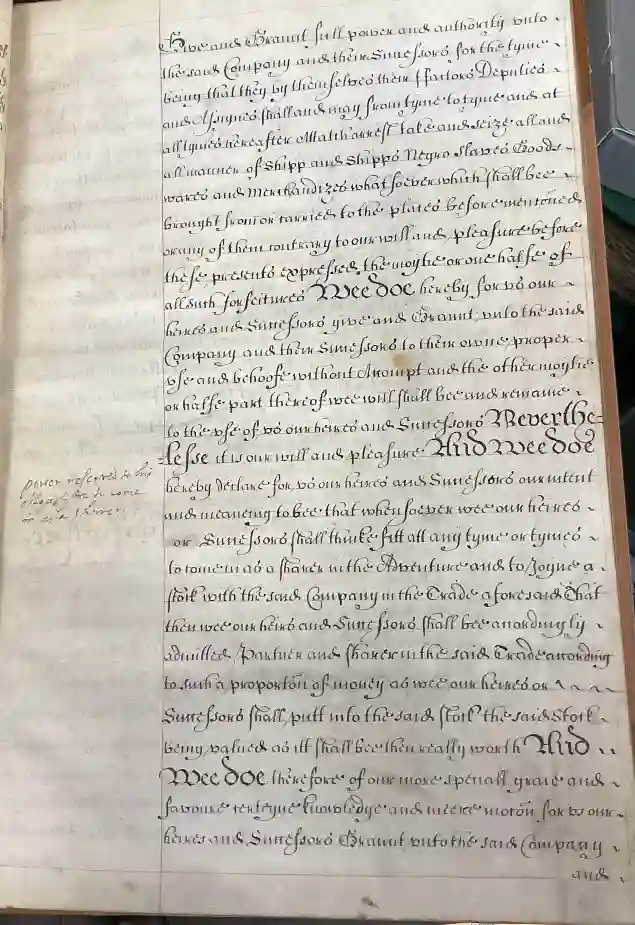 Give and Graunt full power and authority unto
the said Company and their Successors for the tyme
being that they by themselves their ffactors Deputies
and Assignes shall and may from tyme to tyme and at
all tymes hereafter Attach arrest take and seize all and
all manner of Shipp and Shipps Negro Slaves Goods
wares and Merchandizes whatsoever which shall bee
brought from or carried to the places before mentoned
or any of them contrary to our will and pleasure before
these presents expressed the moytie or one halfe of
all such forfeitures Wee doe hereby for us our
heires and Successors give and Graunt unto the said
Company and their Successors to their owne proper
use and behoofe without Accompt and the other moytie
or halfe part thereof wee will shall bee and remaine
to the use of us our heires and Successors Neverthe-
lesse it is our will and pleasure And Wee doe
hereby declare for us our heires and Successors our intent
and meaneing to bee that whensoever wee our heires
or Successors shall thinke fitt att any tyme or tymes
to come in as a sharer in the Adventure and to Joyne a
stock with the said Company in the Trade aforesaid That
then wee our heirs and Successors shall bee accordingly
admitted Partner and sharer in the said Trade according
to such a proporton of money as wee our heires or
Successors shall putt into the said stock the said Stock
being valued as itt shall bee then really worth And
Wee doe therefore of our more speciall grace and
favoure certeyne knowledge and meere moton for us our
heires and Successors Graunt unto the said Company
and
power reserved to his
to come
in as a sharer